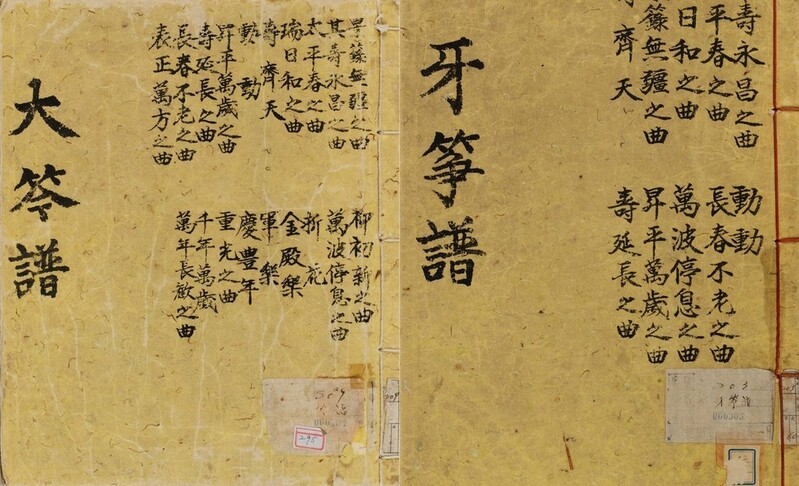 大笒譜
景籙無疆之曲
其壽永昌之曲
太平春之曲
瑞日和之曲
壽齊天
動動
昇平萬歲之曲
壽延長之曲
長春不老之曲
表正萬方之曲
柳初新之曲
萬波停息之曲
折花
金殿樂
軍樂
慶豊年
重光之曲
千年萬歲
萬年長歡之曲
295
牙箏譜
壽永昌之曲
平春之曲
日和之曲
籙無疆之曲
齊天
動動
長春不老之曲
萬波停息之曲
昇平萬歲之曲
壽延長之曲